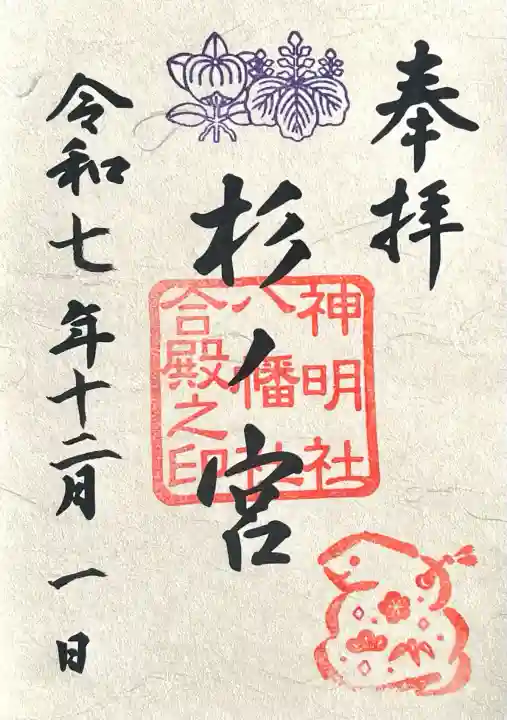 奉拝
杉ノ宮
神明社
八幡社
合殿之印
令和七年十二月一日